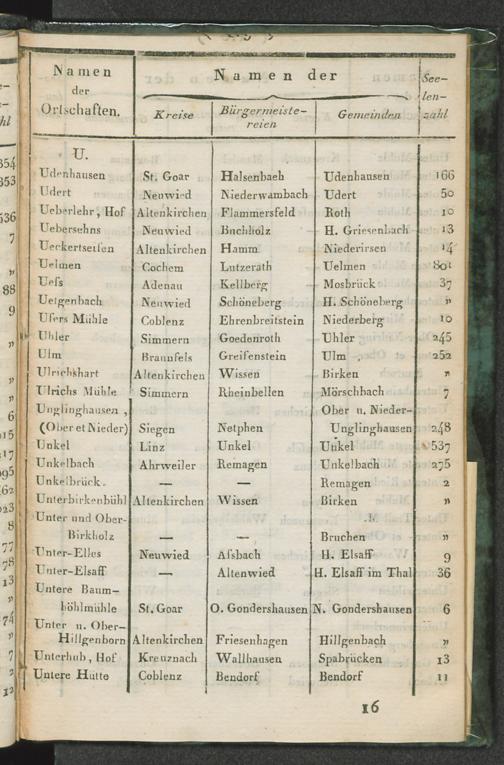 Namen der Ortschaften. Namen der See-
len-
zahl
Kreise Bürgermeiste-
reien Gemeinden
U.
Udenhausen St. Goar Halsenbach Udenhausen 166
Udert Neuwied Niederwambach Udert 50
Ueberlehr, Hof Altenkirchen Flammersfeld Roth 10
Uebersehns Neuwied Buchholz H. Griesenbach 13
Ueckertseifen Altenkirchen Hamm Niederirsen 14
Uelmen Cochem Lutzerath Uelmen 801
Uess Adenau Kellberg Mosbrück 37
Uetgenbach Neuwied Schöneberg H. Schöneberg "
Ufers Mühle Coblenz Ehrenbreitstein Niederberg 10
Uhler Simmern Goedenroth Uhler 245
Ulm Braunfels Greifenstein Ulm 252
Ulrichshart Altenkirchen Wissen Birken "
Ulrichs Mühle Simmern Rheinbellen Mörschbach 7
Unglinghausen, Ober u. Nieder-
(Ober et Nieder) Siegen Netphen Unglinghausen 248
Unkel Linz Unkel Unkel 537
Unkelbach Ahrweiler Remagen Unkelbach 275
Unkelbrück. — — Remagen 2
Unterbirkenbühl Altenkirchen Wissen Birken "
Unter und Ober-
Birkholz — — Bruchen "
Unter-Elles Neuwied Asbach H. Elsaff 9
Unter-Elsaff — Altenwied H. Elsaff im Thal 36
Untere Baum-
höhlmühle St. Goar O. Gondershausen N. Gondershausen 6
Unter u. Ober-
Hillgenborn Altenkirchen Friesenhagen Hillgenbach "
Unterhub, Hof Kreuznach Wallhausen Spabrücken 13
Untere Hütte Coblenz Bendorf Bendorf 11
16